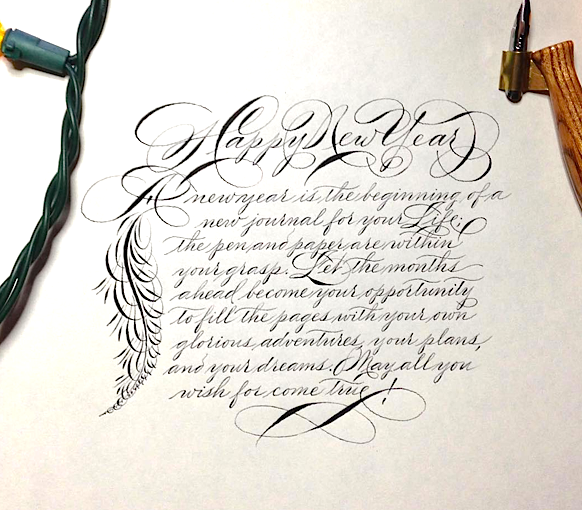 Happy New Year
A new year is the beginning of a
new journal for your Life;
the pen and paper are within
your grasp. Let the months
ahead become your opportunity
to fill the pages with your own
glorious adventures, your plans,
and your dreams. May all you
wish for, come true!